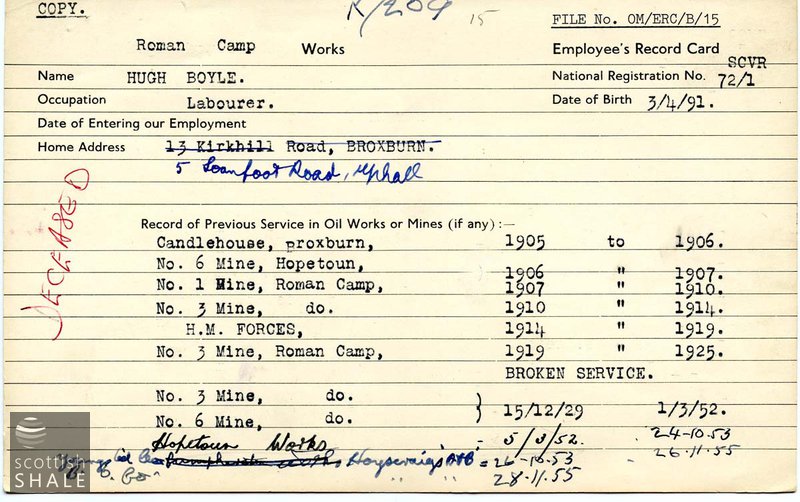 COPY.
K/204
15
FILE No. OM/ERC/B/15
Roman Camp Works
Employee's Record Card
SCVR
Name HUGH BOYLE.
National Registration No. 72/1
Occupation Labourer.
Date of Birth 3/4/91.
Date of Entering our Employment
Home Address 13 Kirkhill Road, BROXBURN.
5 Loanfoot Road, Uphall
DECEASED
Record of Previous Service in Oil Works or Mines (if any) :—
Candlehouse, Broxburn, 1905 to 1906.
No. 6 Mine, Hopetoun, 1906 " 1907.
No. 1 Mine, Roman Camp, 1907 " 1910.
No. 3 Mine, do. 1910 " 1914.
H.M. FORCES, 1914 " 1919.
No. 3 Mine, Roman Camp, 1919 " 1925.
BROKEN SERVICE.
No. 3 Mine, do.
No. 6 Mine, do. } 15/12/29 1/3/52.
Hopetoun Works - 3/3/52. 24-10.53
Hayscraigs = 26-10.53 26.11.55
28.11.55
scottish
SHALE